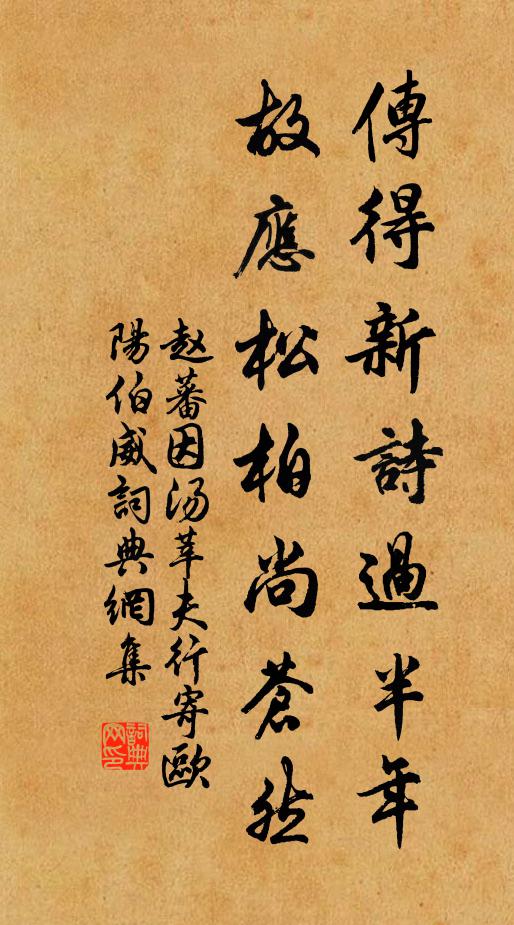 傳得新詩過半年
故應松柏尚蒼然
赵蕃因汤莘夫行寄歐
陽伯威詞典網集
詞典网印